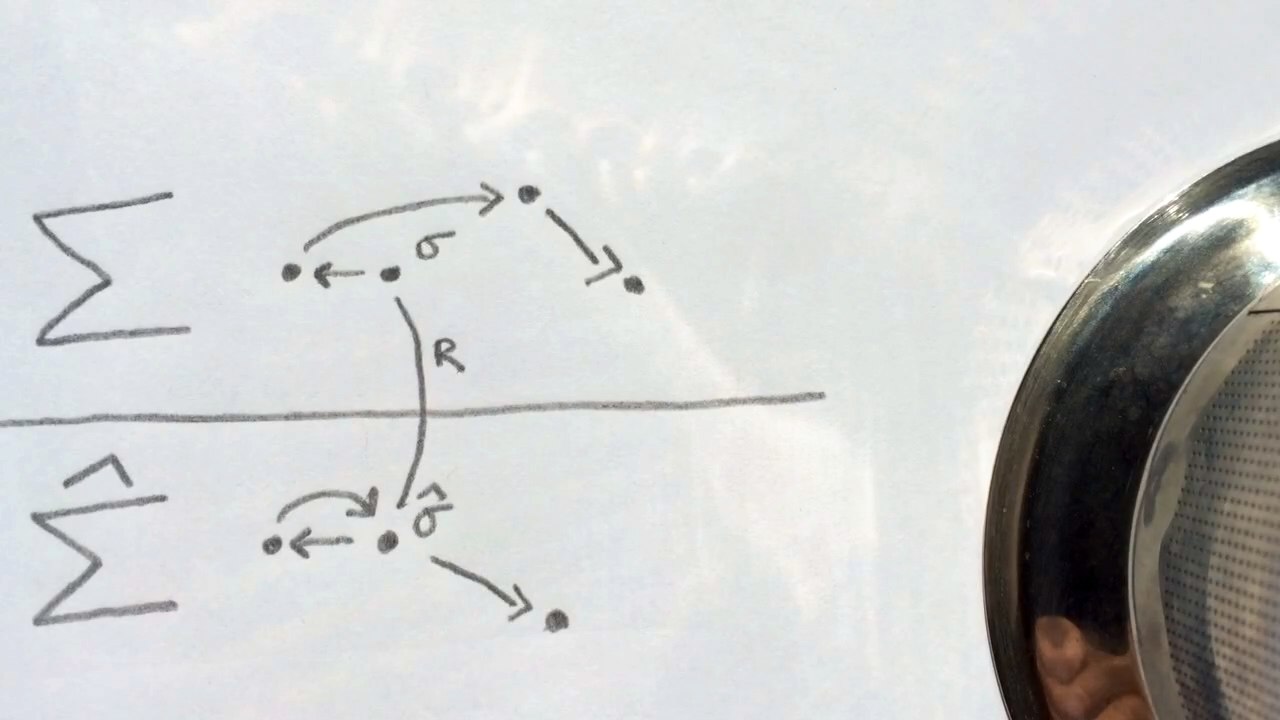 Σ σ
R
Σ̂ σ̂